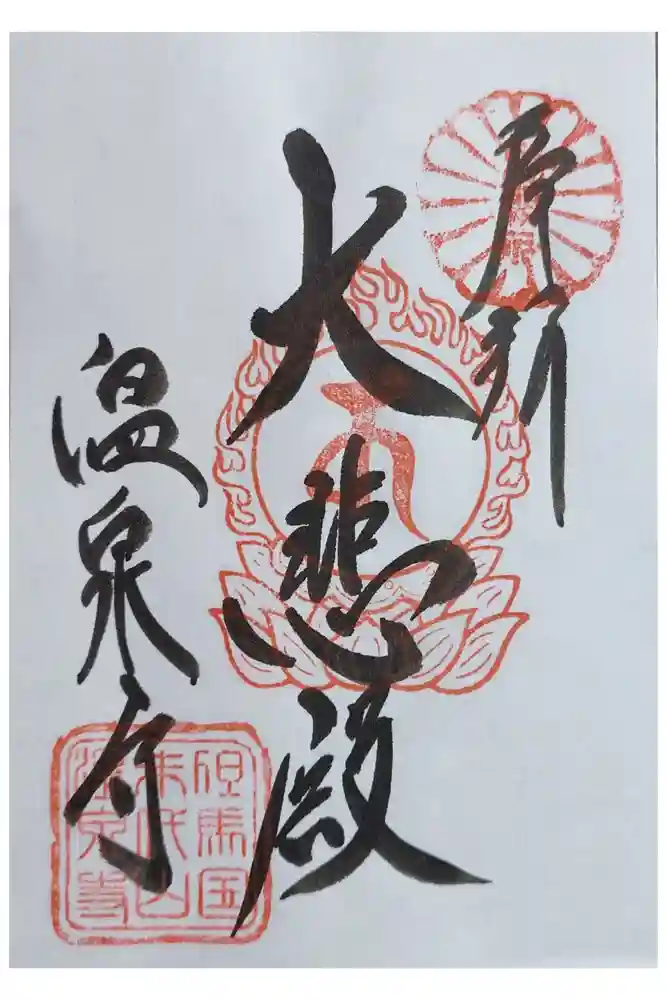 奉拝
大悲殿
温泉寺
但馬国
末代山
温泉寺